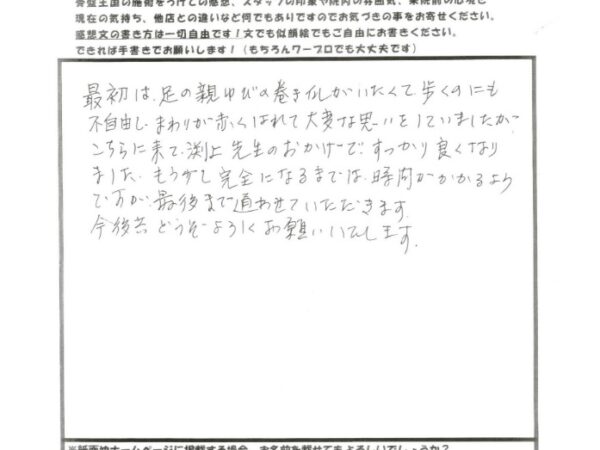 骨盤王国の施術をうけての感想、スタッフの印象や院内の雰囲気、来院前の心境と
現在の気持ち、他店との違いなど何でもありですのでお気づきの事をお寄せください。
感想文の書き方は一切自由です！文でも似顔絵でもご自由にお書きください。
できれば手書きでお願いします！（もちろんワープロでも大丈夫です）
最初は、足の親ゆびの巻き爪がいたくて、歩くのにも
不自由し、まわりが赤くはれて大変な思いをしていましたが、
こちらに来て、渕上先生のおかげで、すっかり良くなり
ました。もう少し完全になるまでは、時間がかかるよう
ですが、最後まで通わせていただきます。
今後共どうぞよろしくお願いいたします。